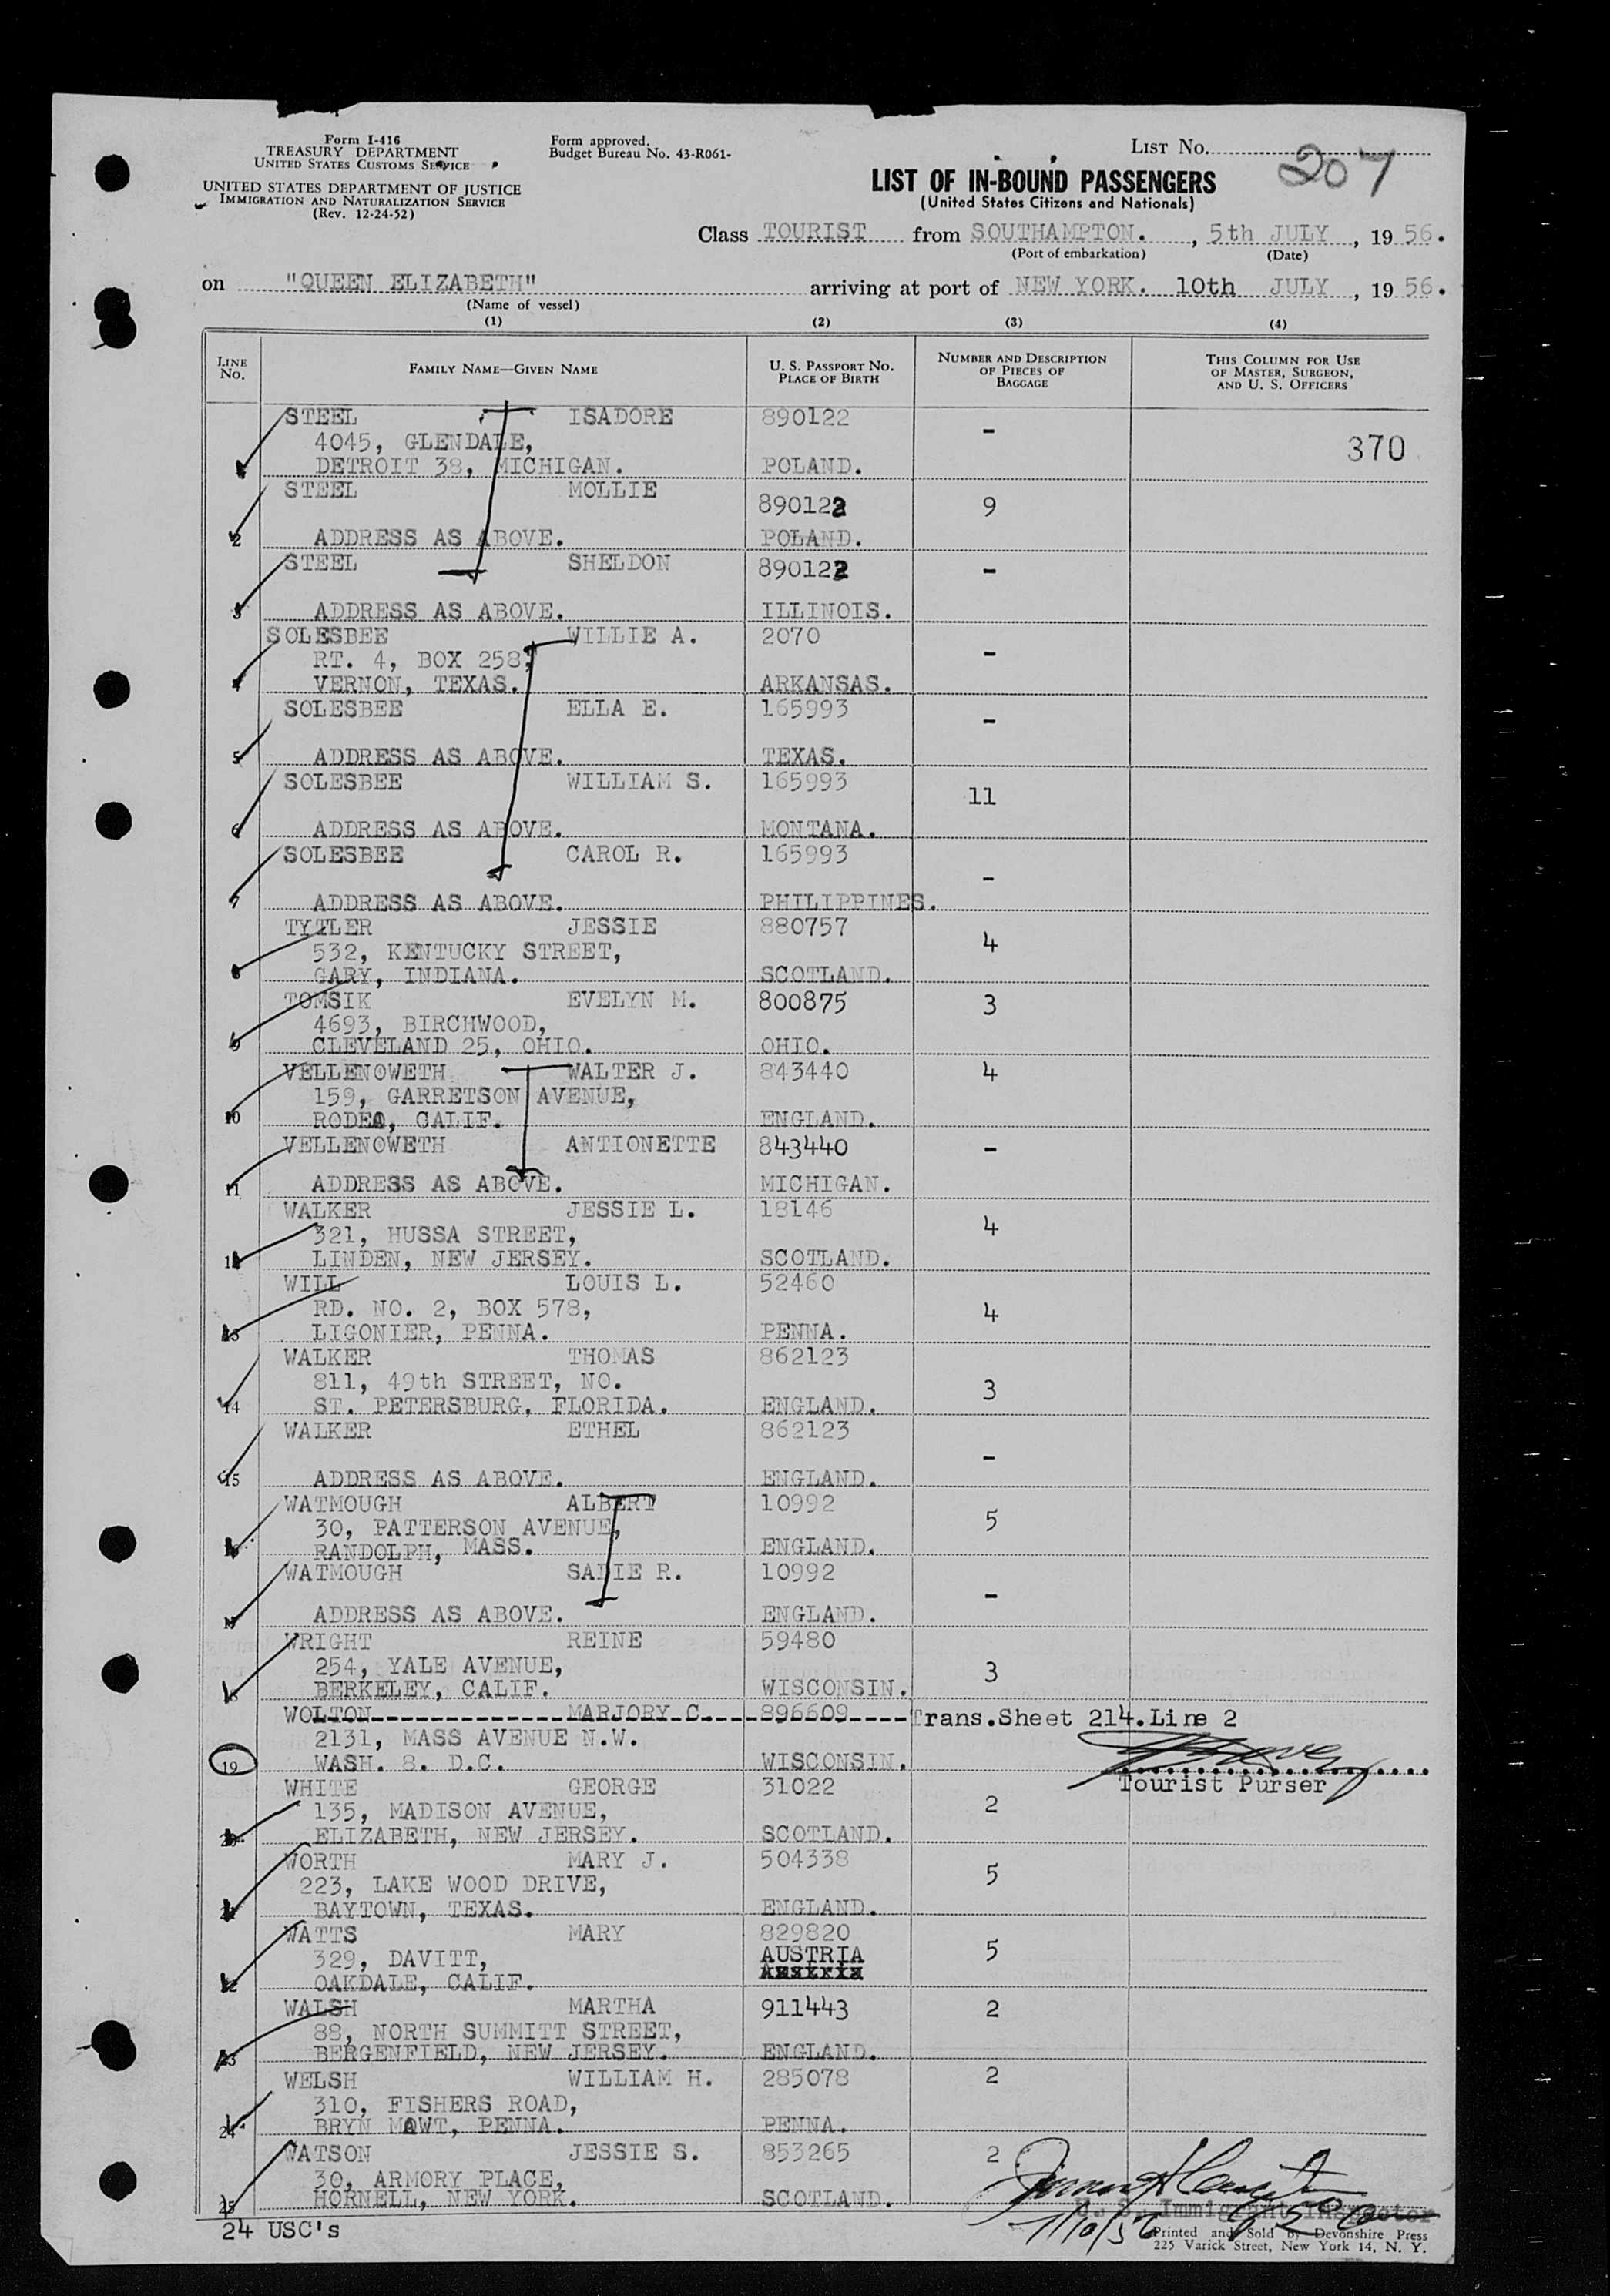 Form I-416
TREASURY DEPARTMENT
UNITED STATES CUSTOMS SERVICE
UNITED STATES DEPARTMENT OF JUSTICE
IMMIGRATION AND NATURALIZATION SERVICE
(Rev. 12-24-52)
Form approved.
Budget Bureau No. 43-R061-
LIST NO. 207
LIST OF IN-BOUND PASSENGERS
(United States Citizens and Nationals)
Class TOURIST from SOUTHAMPTON. , 5th JULY , 19 56.
(Port of embarkation) (Date)
on "QUEEN ELIZABETH" arriving at port of NEW YORK. 10th JULY , 19 56.
(Name of vessel)
(1) (2) (3) (4)
LINE NO. FAMILY NAME—GIVEN NAME U. S. PASSPORT NO. PLACE OF BIRTH NUMBER AND DESCRIPTION OF PIECES OF BAGGAGE THIS COLUMN FOR USE OF MASTER, SURGEON, AND U. S. OFFICERS
STEEL ISADORE 890122 -
4045, GLENDALE, 370
DETROIT 38, MICHIGAN. POLAND.
STEEL MOLLIE 890122 9
2 ADDRESS AS ABOVE. POLAND.
STEEL SHELDON 890122 -
3 ADDRESS AS ABOVE. ILLINOIS.
SOLESBEE WILLIE A. 2070 -
RT. 4, BOX 258,
4 VERNON, TEXAS. ARKANSAS.
SOLESBEE ELLA E. 165993 -
5 ADDRESS AS ABOVE. TEXAS.
SOLESBEE WILLIAM S. 165993 11
6 ADDRESS AS ABOVE. MONTANA.
SOLESBEE CAROL R. 165993 -
7 ADDRESS AS ABOVE. PHILIPPINES.
TYTLER JESSIE 880757 4
532, KENTUCKY STREET,
8 GARY, INDIANA. SCOTLAND.
TOMSIK EVELYN M. 800875 3
4693, BIRCHWOOD,
9 CLEVELAND 25, OHIO. OHIO.
VELLENOWETH WALTER J. 843440 4
159, GARRETSON AVENUE,
10 RODEO, CALIF. ENGLAND.
VELLENOWETH ANTIONETTE 843440 -
11 ADDRESS AS ABOVE. MICHIGAN.
WALKER JESSIE L. 18146 4
321, HUSSA STREET,
12 LINDEN, NEW JERSEY. SCOTLAND.
WILL LOUIS L. 52460 4
RD. NO. 2, BOX 578,
13 LIGONIER, PENNA. PENNA.
WALKER THOMAS 862123 3
811, 49th STREET, NO.
14 ST. PETERSBURG, FLORIDA. ENGLAND.
WALKER ETHEL 862123 -
15 ADDRESS AS ABOVE. ENGLAND.
WATMOUGH ALBERT 10992 5
30, PATTERSON AVENUE,
16 RANDOLPH, MASS. ENGLAND.
WATMOUGH SADIE R. 10992 -
17 ADDRESS AS ABOVE. ENGLAND.
WRIGHT REINE 59480 3
254, YALE AVENUE,
18 BERKELEY, CALIF. WISCONSIN.
WOLTON MARJORY C. 896609 Trans.Sheet 214.Line 2
2131, MASS AVENUE N.W.
19 WASH. 8. D.C. WISCONSIN.
Tourist Purser
WHITE GEORGE 31022 2
135, MADISON AVENUE,
20 ELIZABETH, NEW JERSEY. SCOTLAND.
WORTH MARY J. 504338 5
223, LAKE WOOD DRIVE,
21 BAYTOWN, TEXAS. ENGLAND.
WATTS MARY 829820 5
329, DAVITT, AUSTRIA
22 OAKDALE, CALIF.
WALSH MARTHA 911443 2
88, NORTH SUMMITT STREET,
23 BERGENFIELD, NEW JERSEY. ENGLAND.
WELSH WILLIAM H. 285078 2
310, FISHERS ROAD,
24 BRYN MAWT, PENNA. PENNA.
WATSON JESSIE S. 853265 2
30, ARMORY PLACE,
25 HORNELL, NEW YORK. SCOTLAND.
24 USC's
U. S. Immigrant Inspector
7/10/56
Printed and Sold by Devonshire Press
225 Varick Street, New York 14, N. Y.